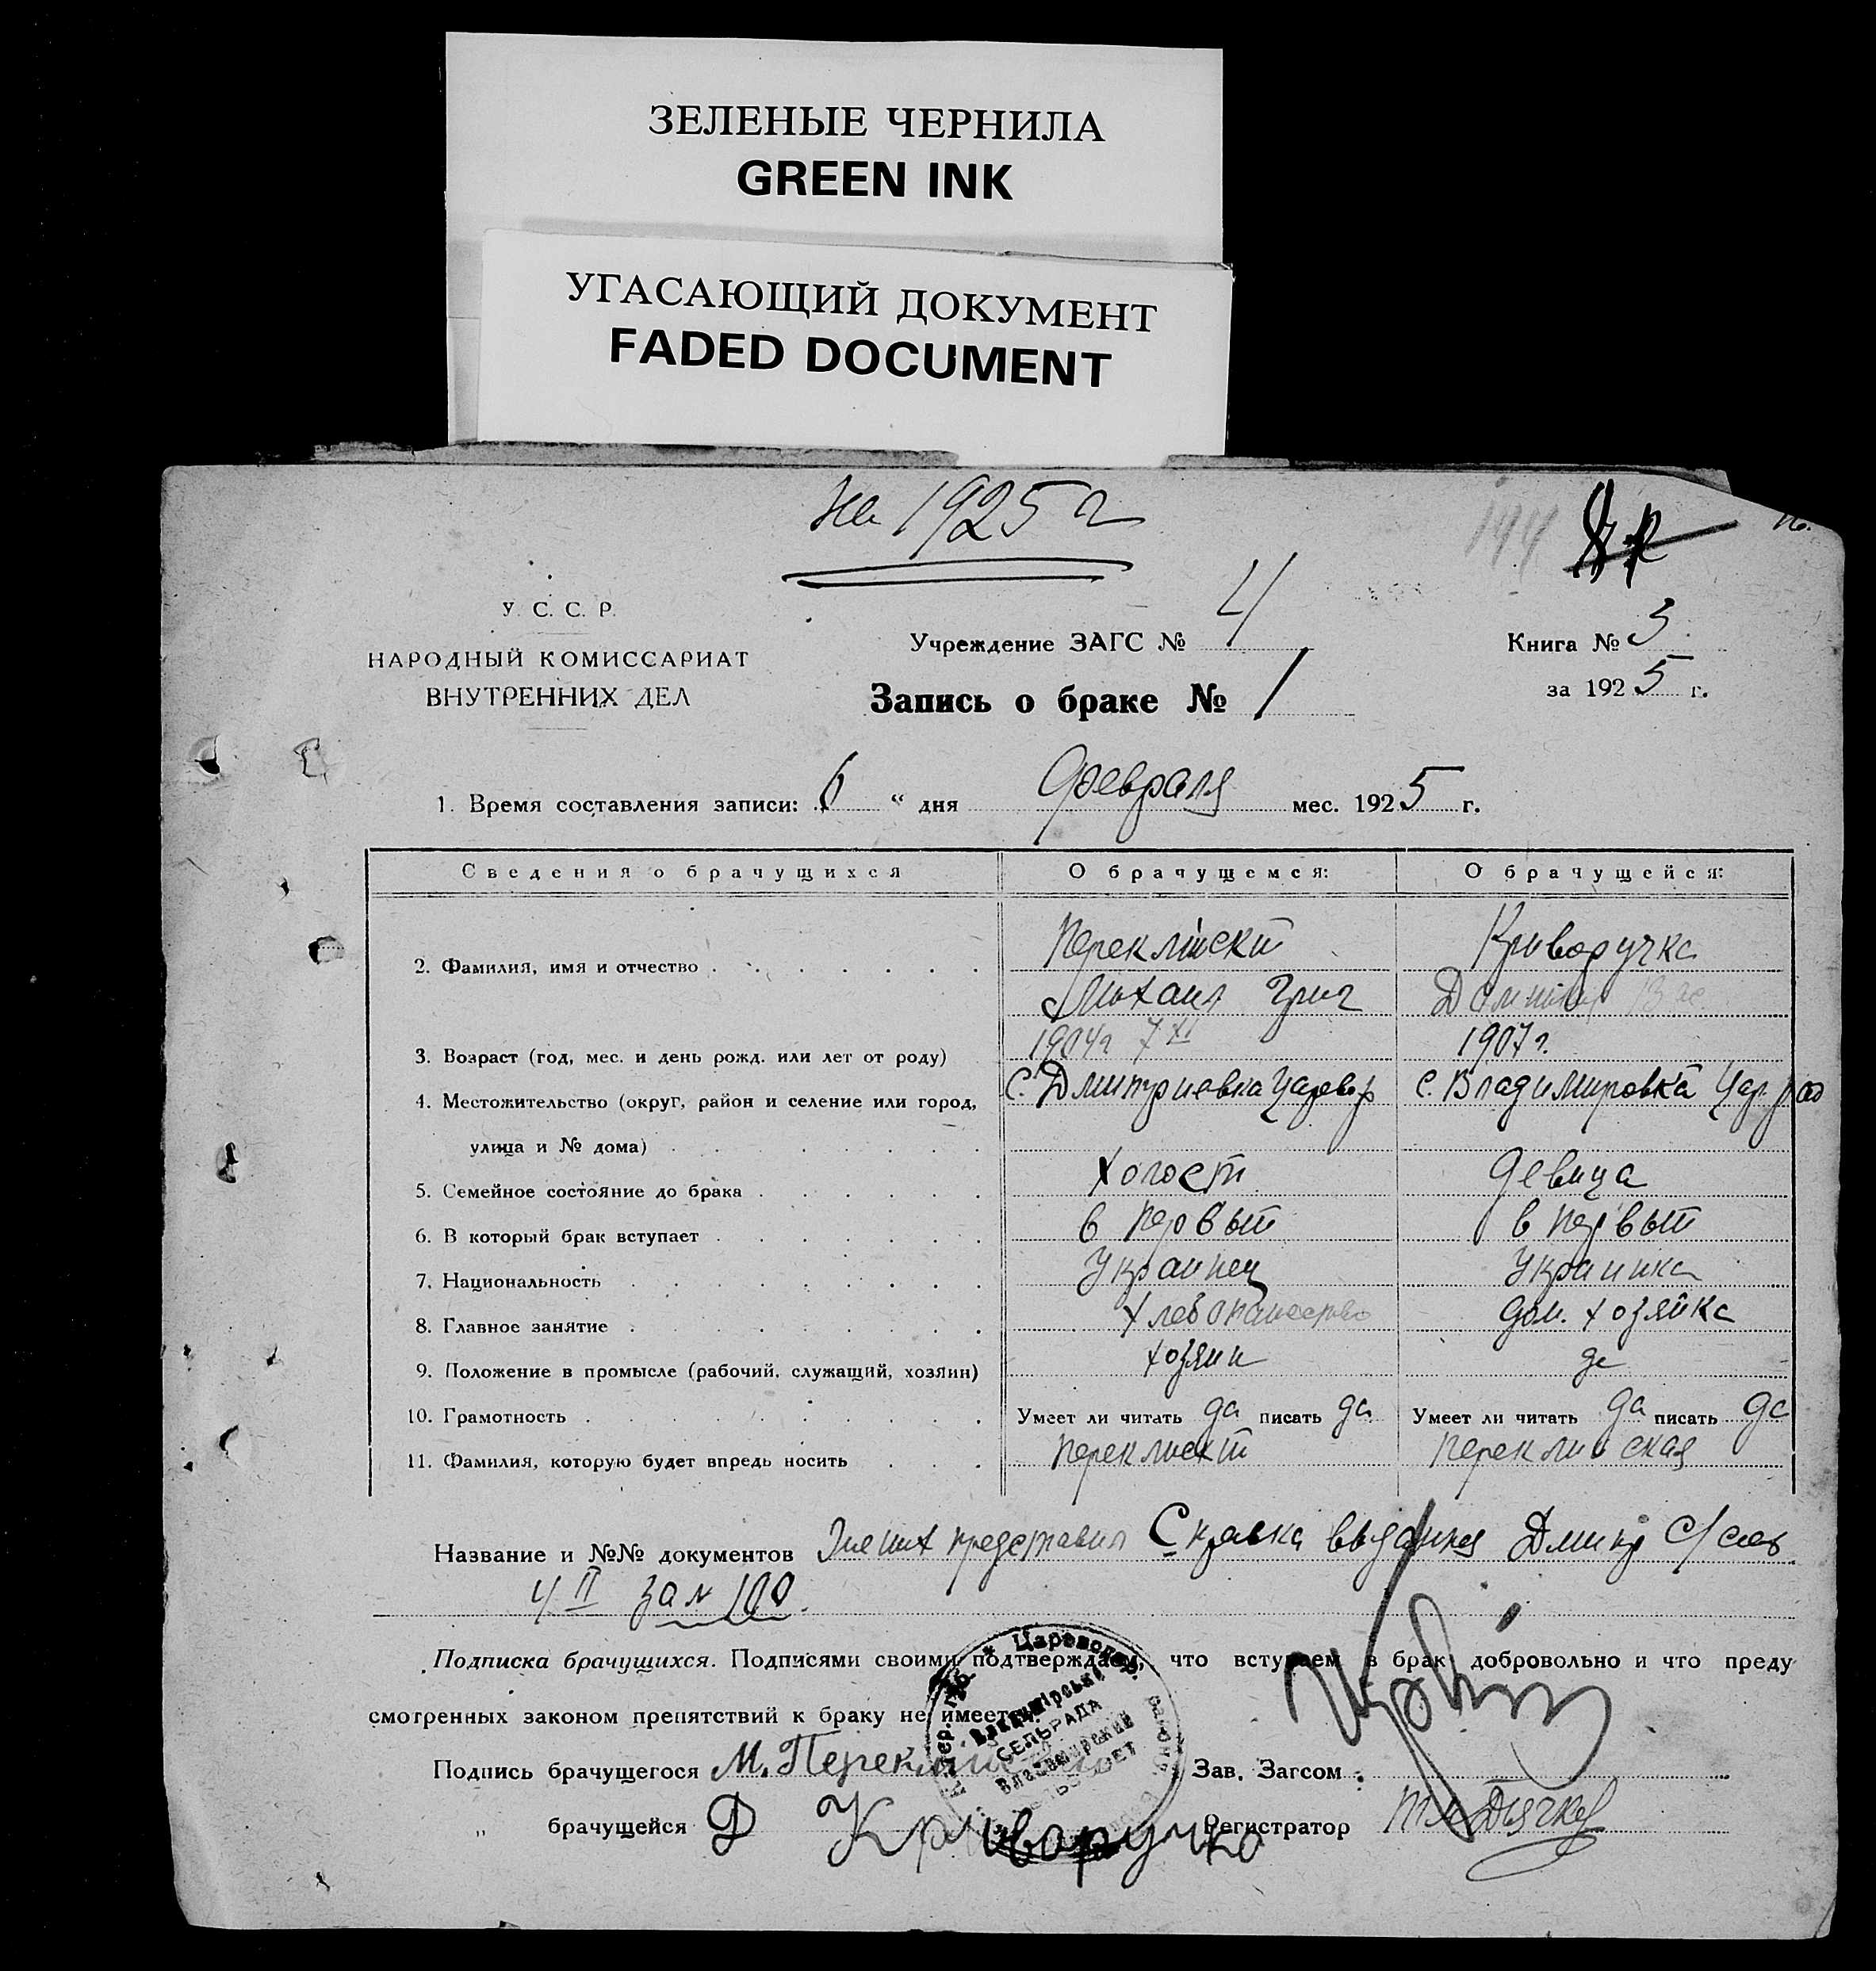 ЗЕЛЕНЫЕ ЧЕРНИЛА
GREEN INK
УГАСАЮЩИЙ ДОКУМЕНТ
FADED DOCUMENT
На 1925 г
144
У. С. С. Р.
НАРОДНЫЙ КОМИССАРИАТ
ВНУТРЕННИХ ДЕЛ
Учреждение ЗАГС № 4
Книга № 3
за 1925 г.
Запись о браке № 1
1. Время составления записи: 6 " дня Февраля мес. 1925 г.
Сведения о брачущихся О брачущемся: О брачущейся:
2. Фамилия, имя и отчество Криворучка
Михаил Григ
3. Возраст (год, мес. и день рожд. или лет от роду) 1904 г 7 XI 1907 г.
4. Местожительство (округ, район и селение или город, с. Дмитриевка с. Владимировка Цар. рай
улица и № дома)
5. Семейное состояние до брака холост девица
6. В который брак вступает в первый в первый
7. Национальность Украинец Украинка
8. Главное занятие Хлебопашество дом. хозяйка
9. Положение в промысле (рабочий, служащий, хозяин) хозяин
10. Грамотность Умеет ли читать да писать да Умеет ли читать да писать да
11. Фамилия, которую будет впредь носить
Название и №№ документов представил Справка выданная Дмитр с/сов
4 II за № 100
Подписка брачущихся. Подписями своими подтверждаем, что вступаем в брак добровольно и что преду
смотренных законом препятствий к браку не имеется.
Подпись брачущегося Зав. Загсом
" брачущейся Д Криворучко Регистратор
СЕЛЬРАДА